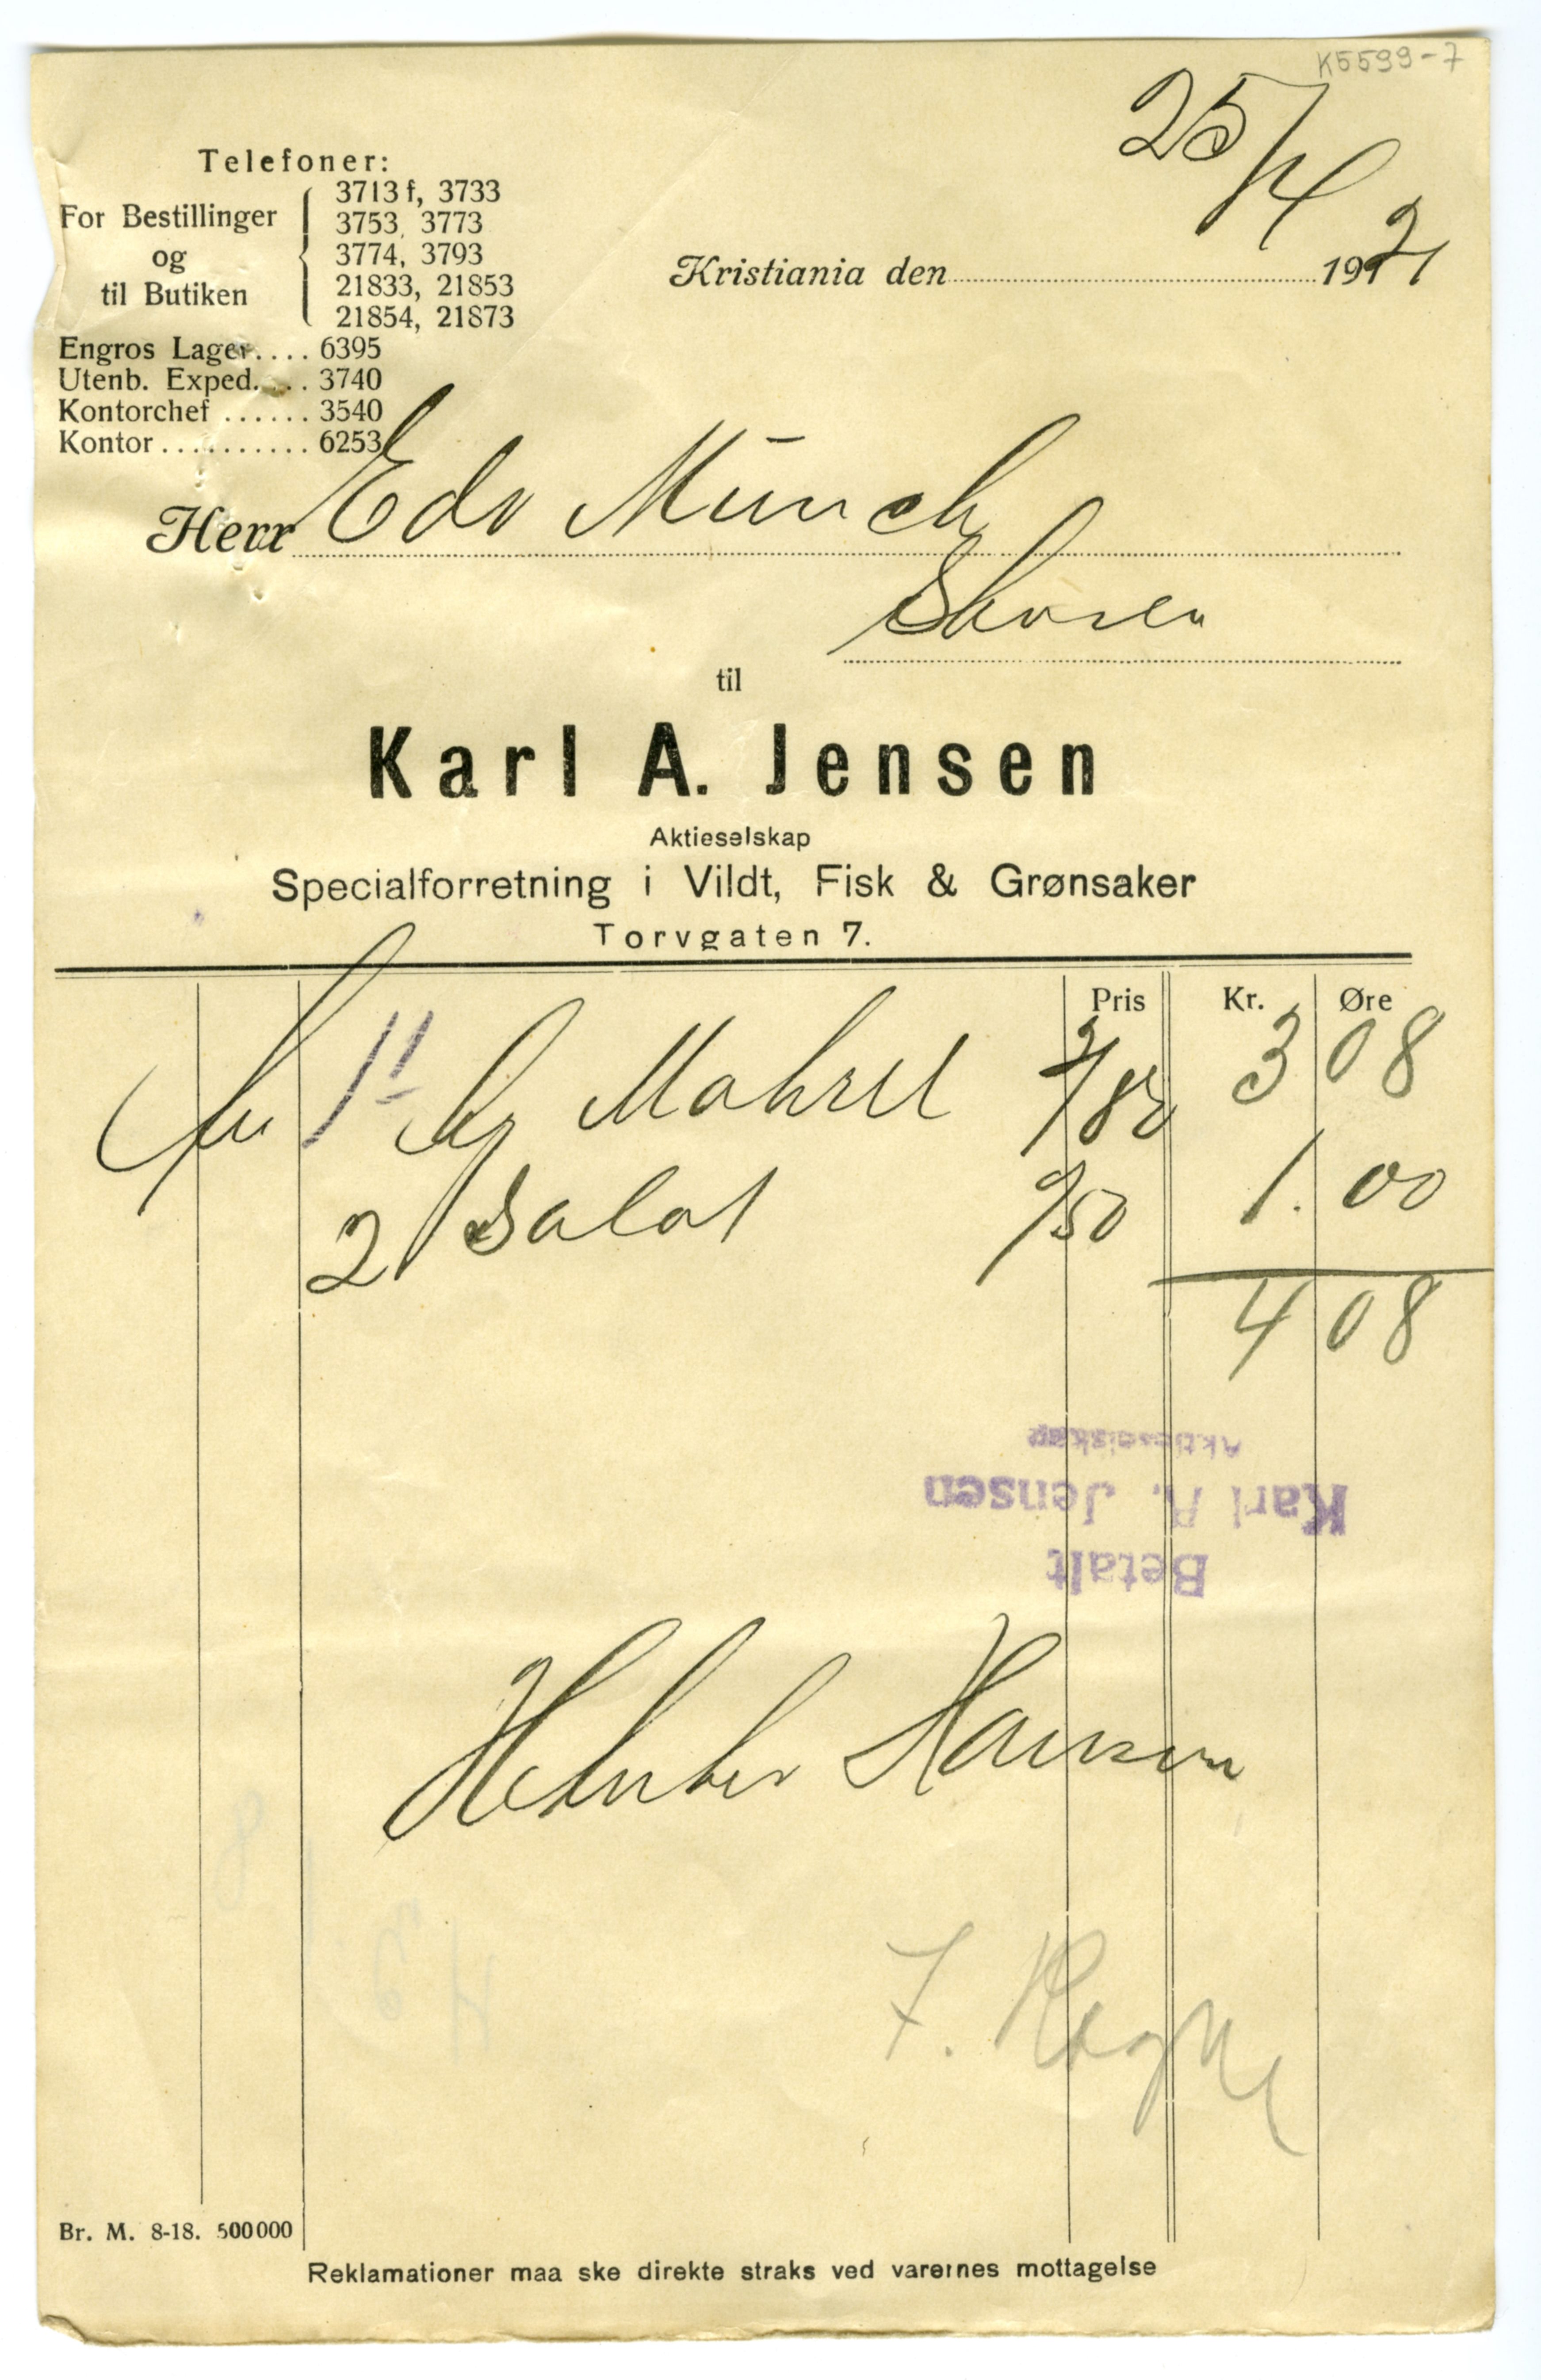 K5599-7
25/4
Telefoner:
For Bestillinger og til Butiken
3713 f, 3733
3753, 3773
3774, 3793
21833, 21853
21854, 21873
Kristiania den 1921
Engros Lager.... 6395
Utenb. Exped.... 3740
Kontorchef ...... 3540
Kontor .......... 6253
Herr Edv Münch
Skøien
til
Karl A. Jensen
Aktieselskap
Specialforretning i Vildt, Fisk & Grønsaker
Torvgaten 7.
Pris Kr. Øre
kg Makrel 3 08
2 Salat 50 1.00
4 08
Aktieselskap
Karl A. Jensen
Betalt
Hansen
Br. M. 8-18. 500000
Reklamationer maa ske direkte straks ved varernes mottagelse